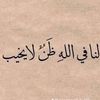 لنا في اللهِ ظَنٌ لا يخيب